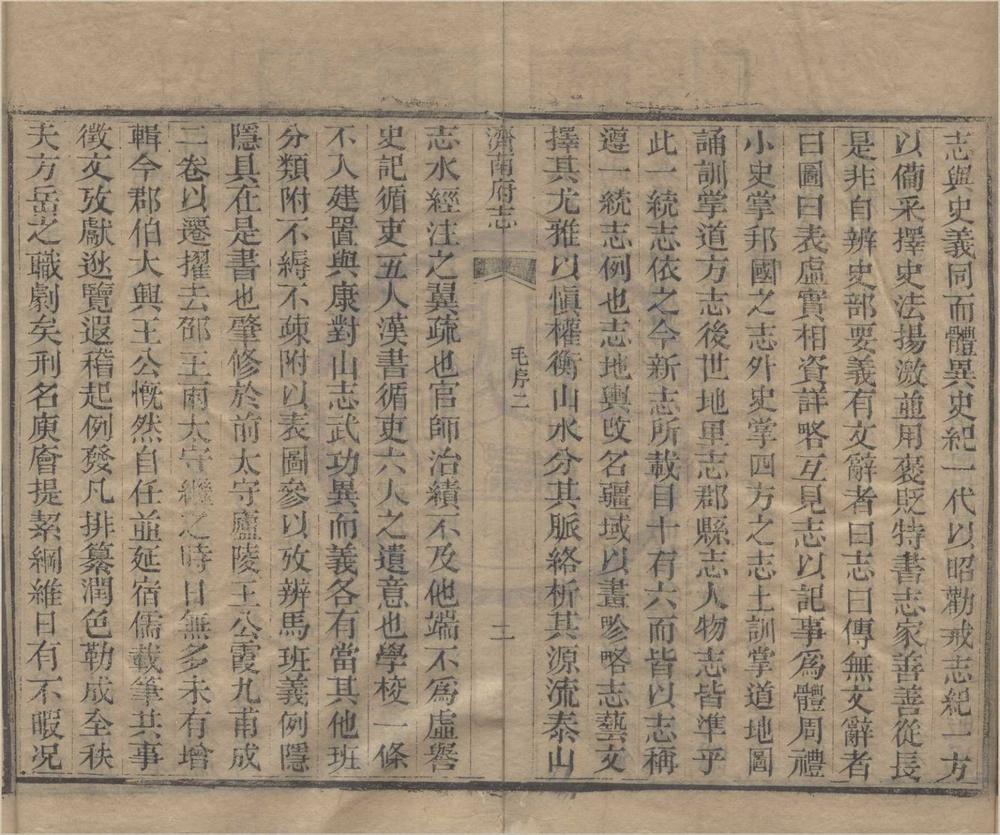 志與史義同而體異史紀一代以昭勸戒志紀一方
以僃采擇史法揚激並用褒貶特書志家善善從長
是非自辨史部要義有文辭者曰志曰傳無文辭者
曰圖曰表虛實相資詳略互見志以記事爲體周禮
小史掌邦國之志外史掌四方之志土訓掌道地圖
誦訓掌道方志後世地里志郡縣志人物志皆準乎
此一統志依之今新志所載目十有六而皆以志稱
遵一統志例也志地輿攷名疆域以畫畛略志藝文
擇其尤雅以愼權衡山水分其脈絡析其源流泰山
濟南府志
毛序二
二
志水經注之翼疏也官師治績不及他端不爲虛譽
史記循吏五人漢書循吏六人之遺意也學校一條
不入建置與康對山志武功異而義各有當其他班
分類附不縟不疎附以表圖參以攷辨馬班義例隱
隱具在是書也肇修於前太守廬陵王公霞九甫成
二卷以遷擢去邵王兩太守繼之時日無多未有增
輯今郡伯大興王公慨然自任並延宿儒載筆其事
徵文攷獻逖覽遐稽起例發凡排纂潤色勒成全秩
夫方岳之職劇矣刑名庾㑹提絜綱維日有不暇况